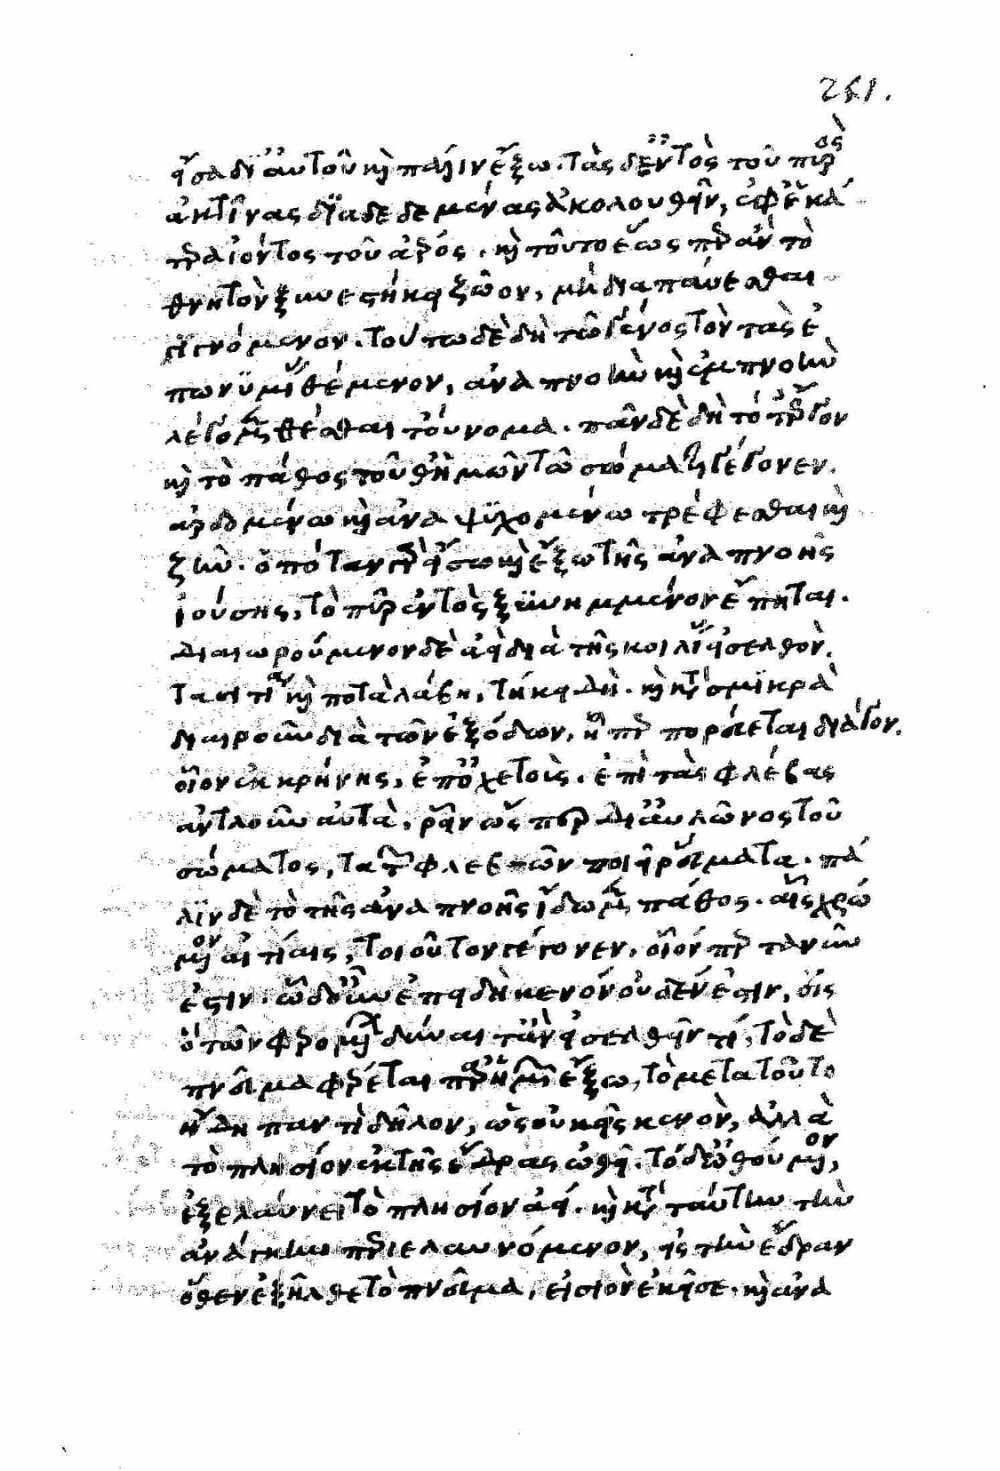 251.
εἴσω δι' αὐτοῦ καὶ πάλιν ἔξω. τὰς δ' ἐντὸς τοῦ πυρὸς
ἀκτῖνας διαδεδεμένας ἀκολουθεῖν, ἐφ' ἑκά
τερα ἰόντος τοῦ ἀέρος. καὶ τοῦτο ἕως περ ἂν τὸ
θνητὸν ξυνεστήκῃ ζῷον, μὴ διαπαύεσθαι
γιγνόμενον. τούτῳ δὲ δὴ τῷ γένος τὸν τὰς ἐ
πωνυμίας θέμενον, ἀναπνοὴν καὶ ἐμπνοὴν
λέγομεν θέσθαι τοὔνομα. πᾶν δὲ δὴ τό τ' ἔργον
καὶ τὸ πάθος τοῦθ' ἡμῶν τῷ σώματι γέγονεν.
ἀρδομένῳ καὶ ἀναψυχομένῳ τρέφεσθαι καὶ
ζῆν. ὁπόταν γὰρ εἴσω καὶ ἔξω τῆς ἀναπνοῆς
ἰούσης, τὸ πῦρ ἐντὸς ξυνημμένον ἕπηται.
διαιωρούμενον δὲ ἀεὶ διὰ τῆς κοιλίας εἰσελθὸν.
τὰ σιτία καὶ ποτὰ λάβῃ, τήκει δὴ. καὶ κατὰ σμικρὰ
διαιροῦν διὰ τῶν ἐξόδων, ᾗπερ πορεύεται διάγον.
οἷον ἐκ κρήνης, ἐπ' ὀχετοὺς. ἐπὶ τὰς φλέβας
ἀντλοῦν αὐτὰ, ῥεῖν ὥσπερ δι' αὐλῶνος τοῦ
σώματος, τὰ τῶν φλεβῶν ποιεῖ ῥεύματα. πά
λιν δὲ τὸ τῆς ἀναπνοῆς ἴδωμεν πάθος. αἷς χρώ
μενον αἰτίαις, τοιοῦτον γέγονεν, οἷόν περ τανῦν
ἐστιν. ὧδ' οὖν ἐπειδὴ κενόν οὐδέν ἐστιν, εἰς
ὃ τῶν φερομένων δύναιτ' ἂν εἰσελθεῖν τί, τὸ δὲ
πνεῦμα φέρεται παρ' ἡμῶν ἔξω, τὸ μετὰ τοῦτο
ἤδη παντὶ δῆλον, ὡς οὐκ εἰς κενὸν, ἀλλὰ
τὸ πλησίον ἐκ τῆς ἕδρας ὠθεῖ. τὸ δ' ὠθούμενον,
ἐξελαύνει τὸ πλησίον ἀεί. καὶ κατὰ ταύτην τὴν
ἀνάγκην περιελαυνόμενον, εἰς τὴν ἕδραν
ὅθεν ἐξῆλθε τὸ πνεῦμα, εἰσιὸν ἐκεῖσε. καὶ ἀνα